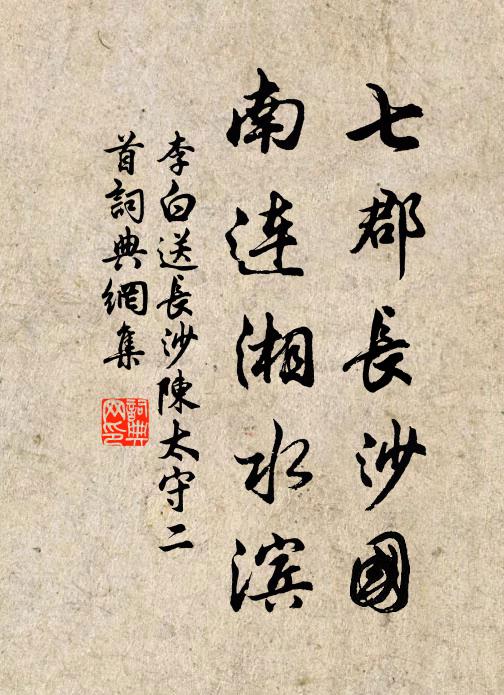 七郡長沙國
南連湘水滨
李白送長沙陳太守二
首詞典網集
詞典
网印